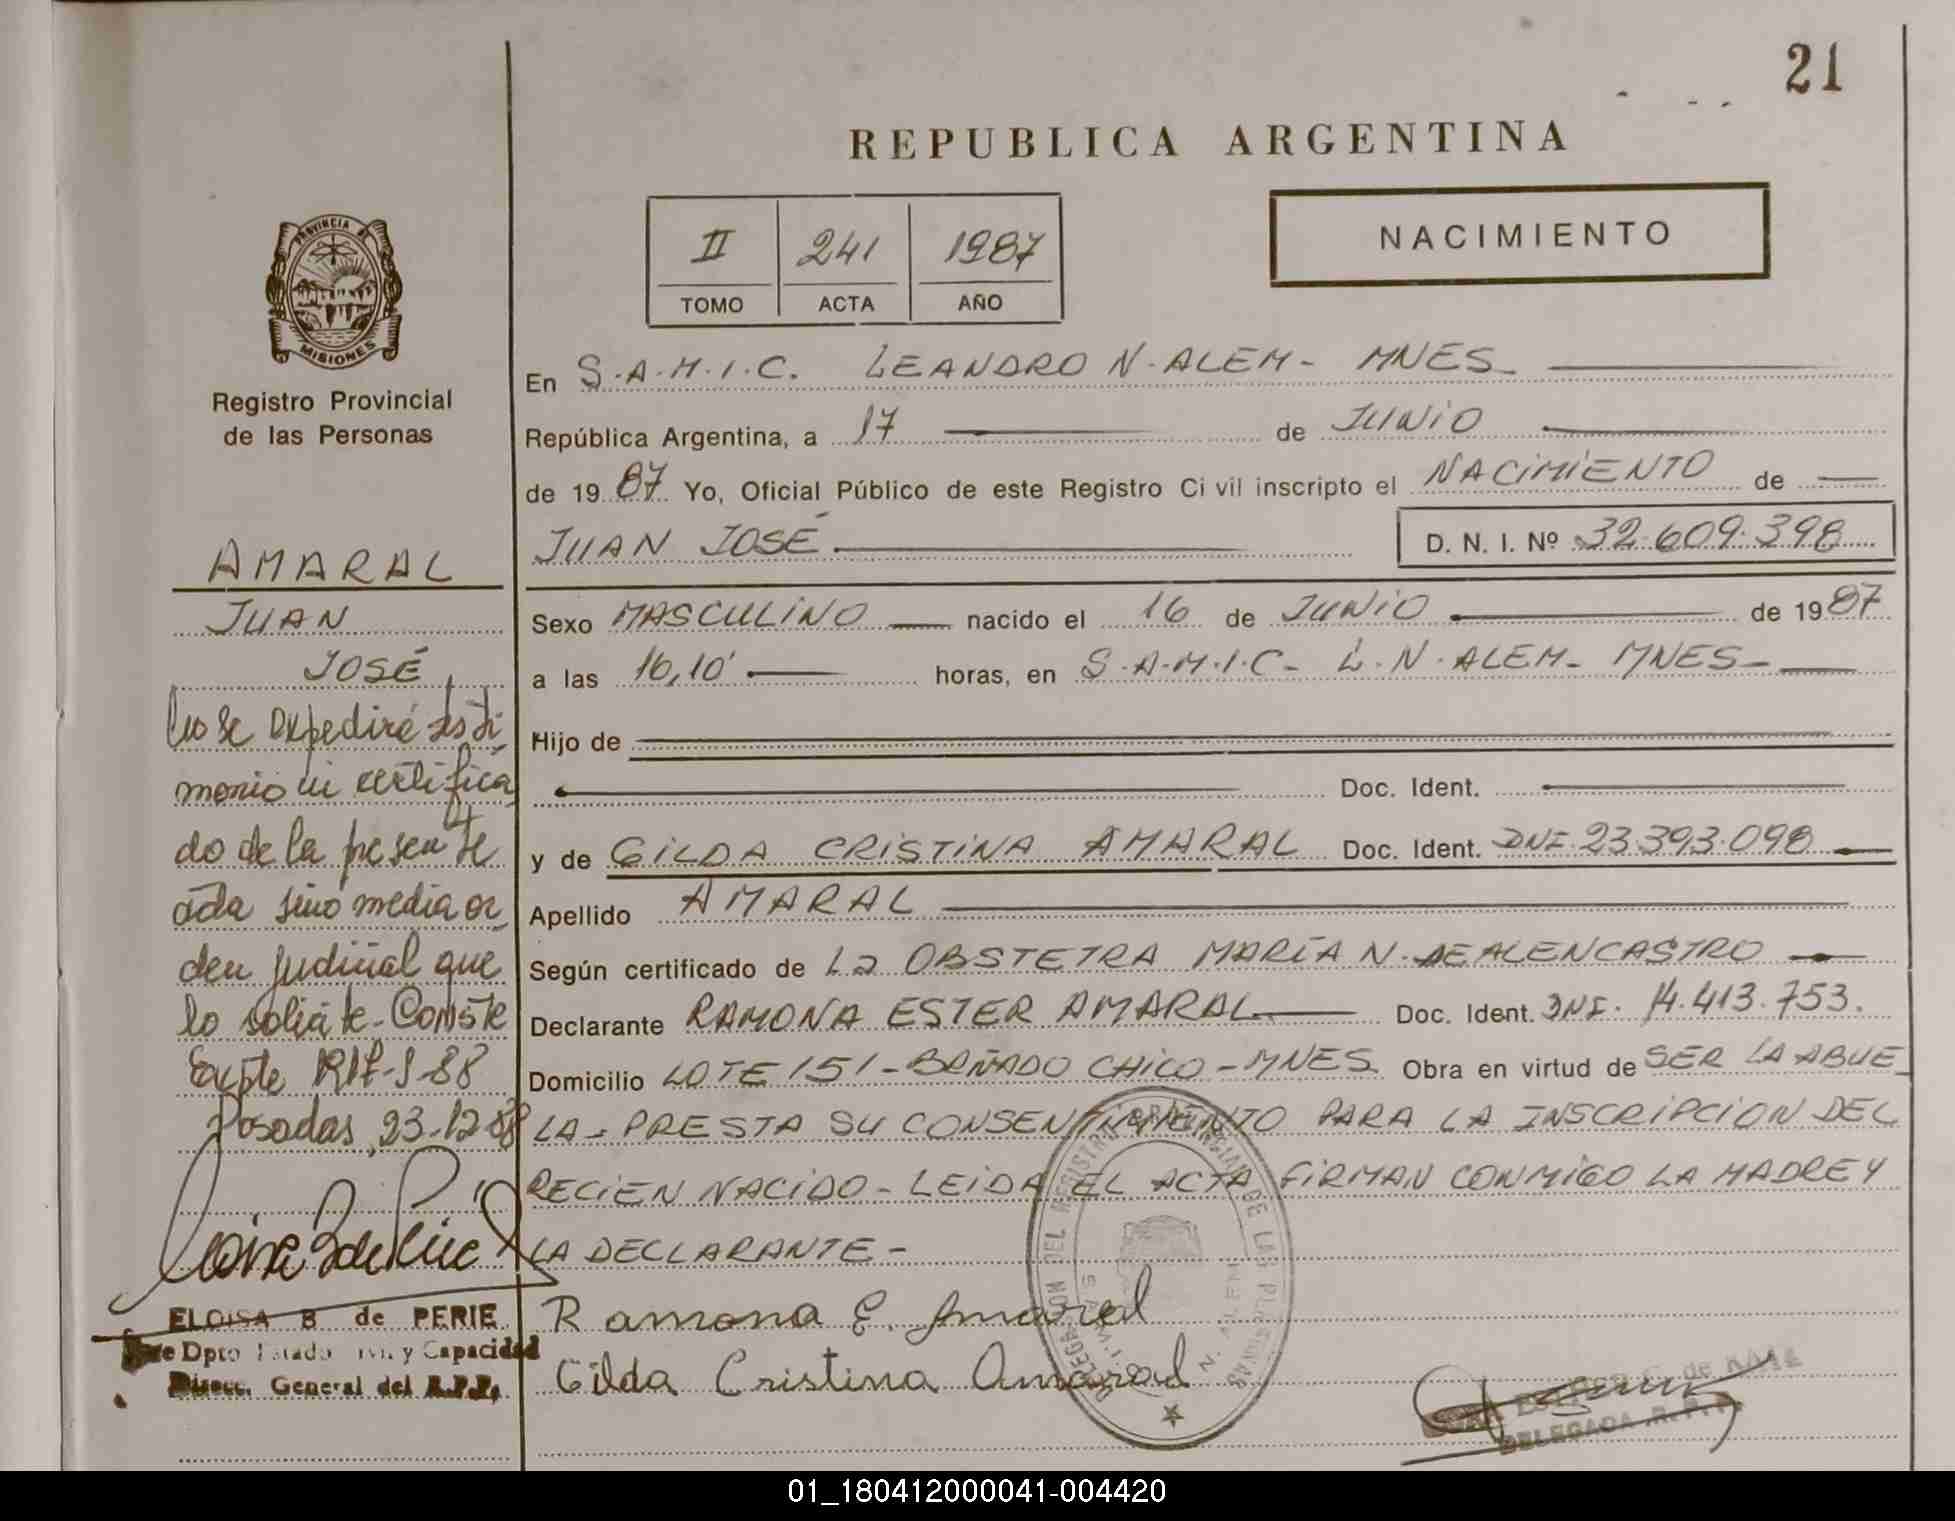 21
REPUBLICA ARGENTINA
NACIMIENTO
II 241 1987
TOMO ACTA AÑO
PROVINCIA DE
MISIONES
Registro Provincial
de las Personas
AMARAL
JUAN
JOSÉ
No se expediré testi
monio ni certifica
do de la presente
acta sino media or
den judicial que
lo solicite - Conste
Expte
Posadas, 23-12-88
ELOISA B de PERIE
Dpto Estado Civil y Capacidad
Direcc. General del R.P.P.
En S.A.M.I.C. LEANDRO N. ALEM - MNES
República Argentina, a 17 de JUNIO
de 1987 Yo, Oficial Público de este Registro Civil inscripto el NACIMIENTO de
JUAN JOSÉ D. N. I. Nº 32.609.398
Sexo MASCULINO nacido el 16 de JUNIO de 1987
a las 16,10' horas, en S.A.M.I.C - L.N. ALEM - MNES
Hijo de
Doc. Ident.
y de GILDA CRISTINA AMARAL Doc. Ident. DNI 23.393.098
Apellido AMARAL
Según certificado de La OBSTETRA MARÍA N. DE ALENCASTRO
Declarante RAMONA ESTER AMARAL Doc. Ident. DNI. 14.413.753.
Domicilio LOTE 151 - BAÑADO CHICO - MNES Obra en virtud de SER LA ABUE
LA - PRESTA SU CONSENTIMIENTO PARA LA INSCRIPCION DEL
RECIEN NACIDO - LEIDA EL ACTA FIRMAN CONMIGO LA MADRE Y
LA DECLARANTE -
Ramona E. Amaral
Gilda Cristina Amaral
DELEGACION DEL REGISTRO PROVINCIAL DE LAS PERSONAS
DELEGADA R. P. P.
01_180412000041-004420